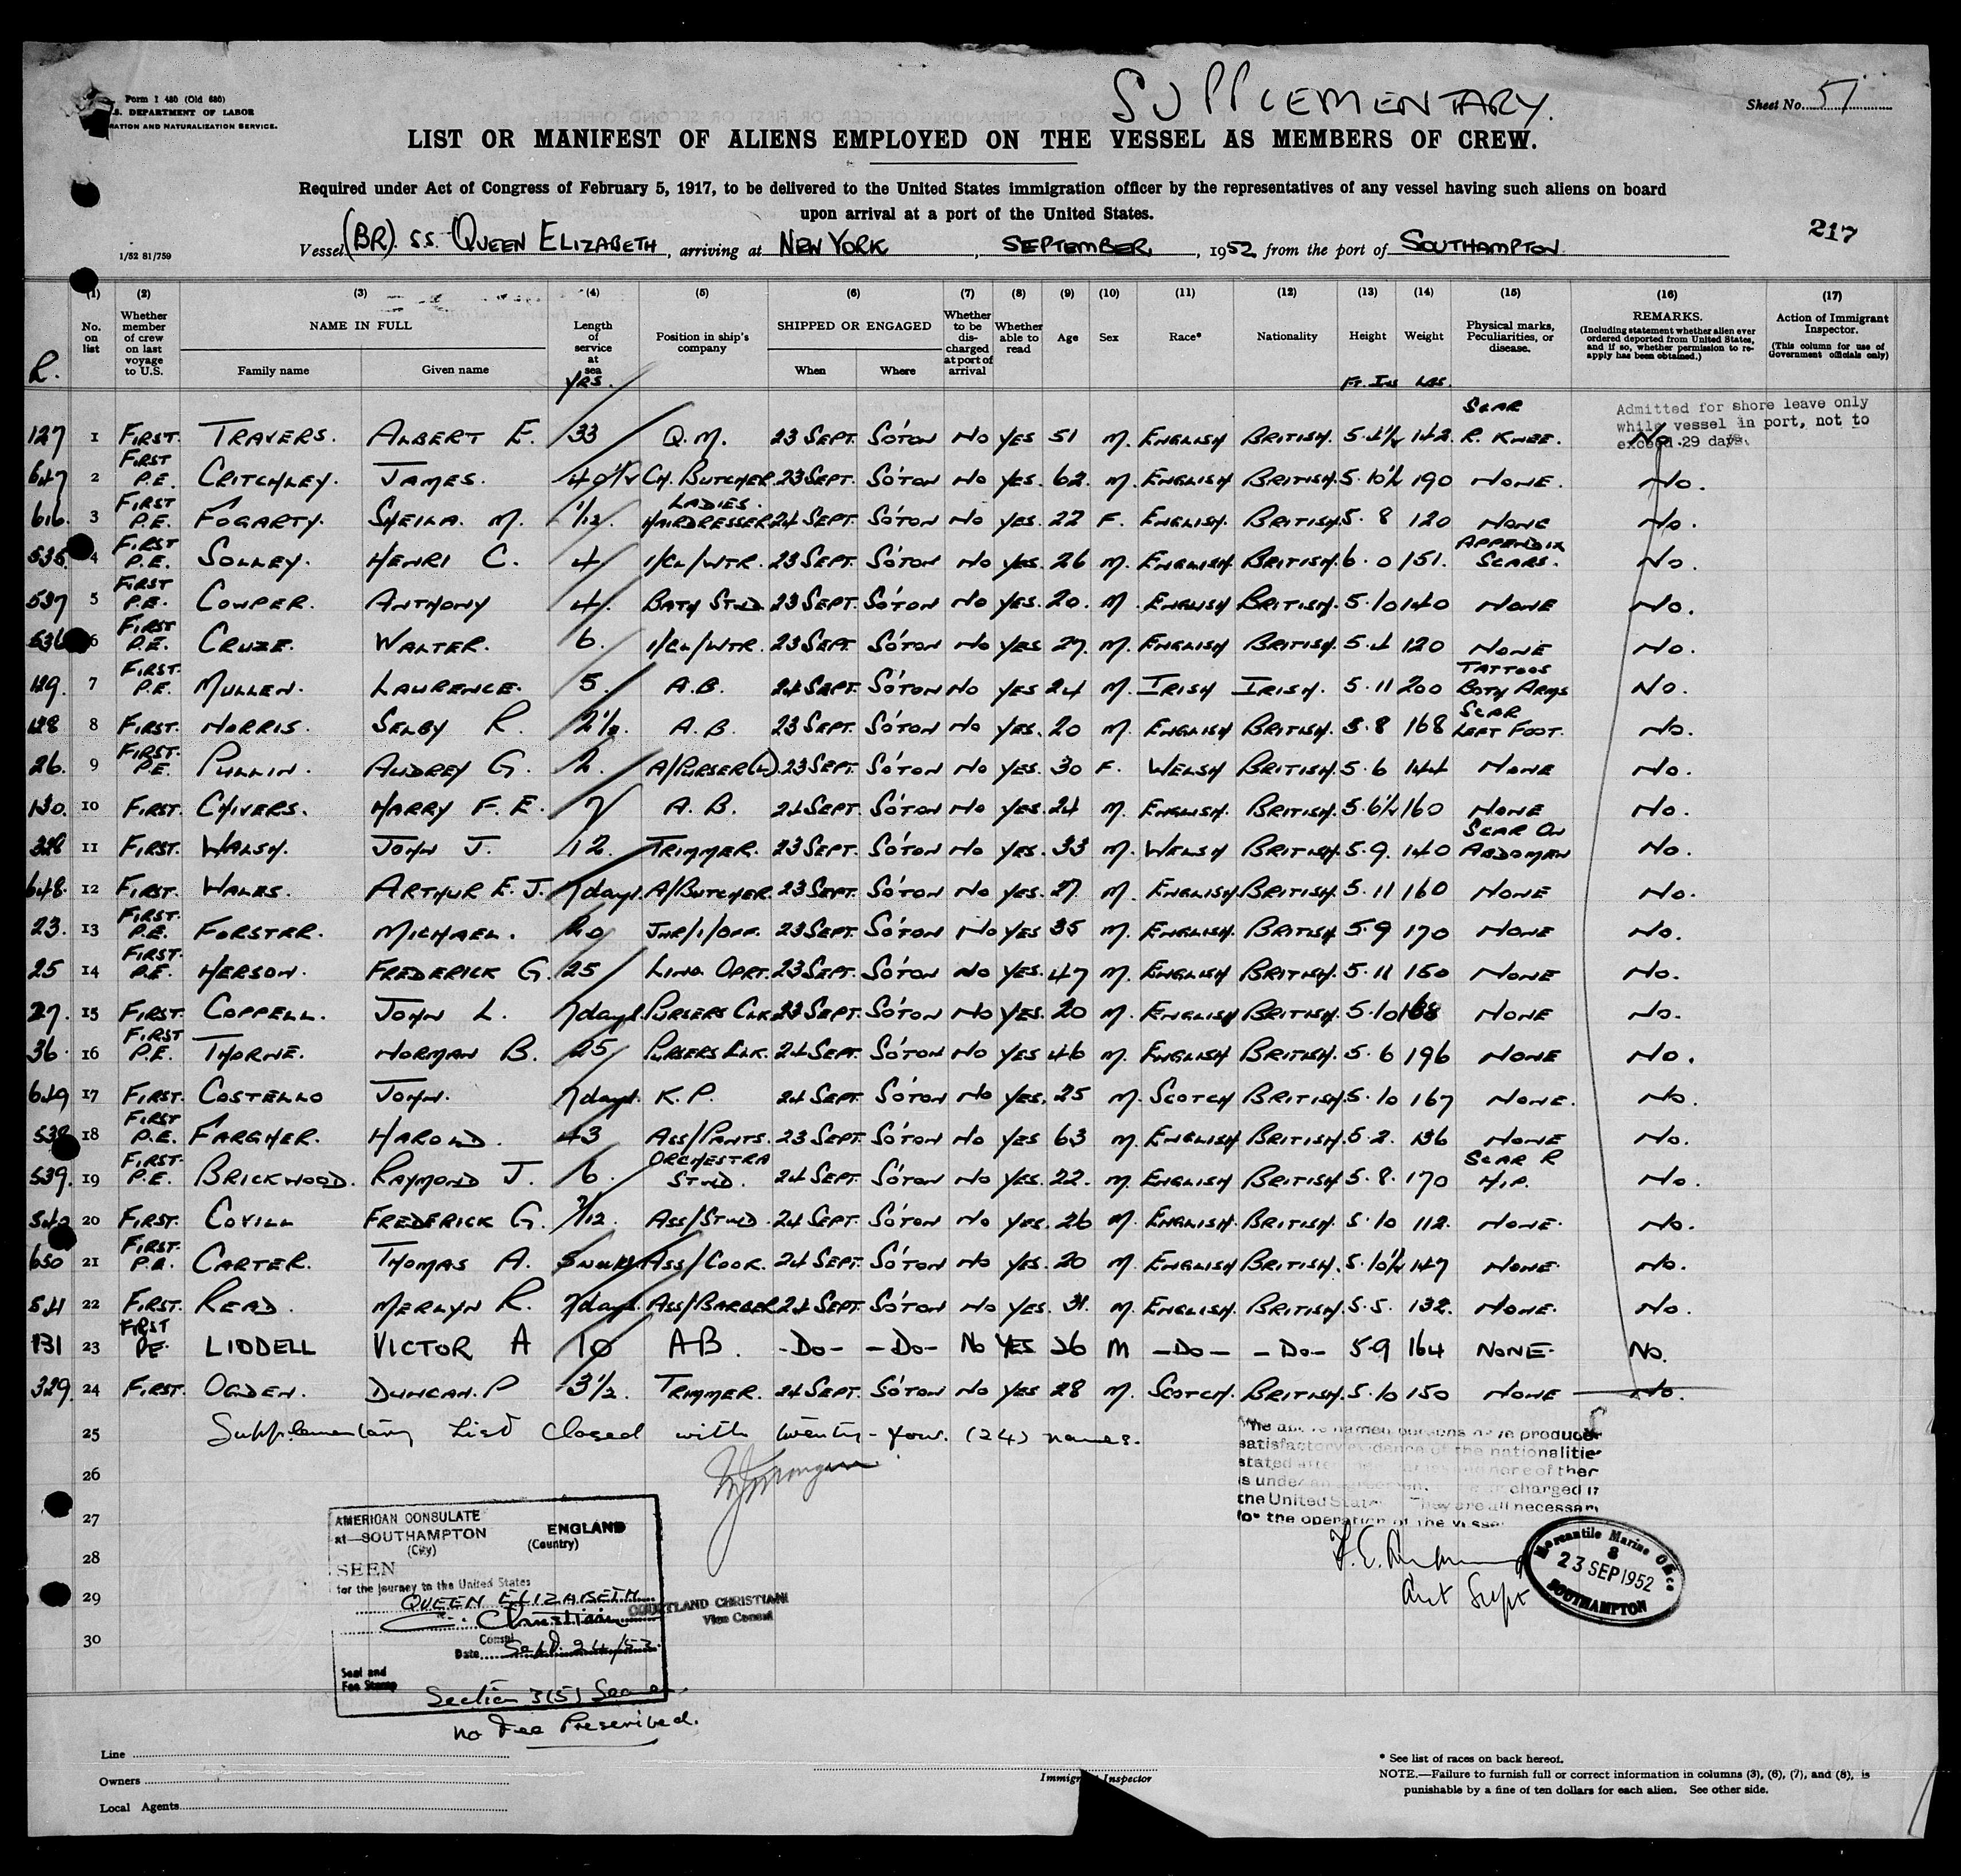 SUPPLEMENTARY.
Form I 480 (Old 680)
S. DEPARTMENT OF LABOR
RATION AND NATURALIZATION SERVICE.
Sheet No. 51
LIST OR MANIFEST OF ALIENS EMPLOYED ON THE VESSEL AS MEMBERS OF CREW.
Required under Act of Congress of February 5, 1917, to be delivered to the United States immigration officer by the representatives of any vessel having such aliens on board
upon arrival at a port of the United States.
217
Vessel (BR). S.S. QUEEN ELIZABETH, arriving at NEW YORK, SEPTEMBER, 1952 from the port of SOUTHAMPTON.
1/52 81/759
(1) (2) (3) (4) (5) (6) (7) (8) (9) (10) (11) (12) (13) (14) (15) (16) (17)
No. on list
Whether member of crew on last voyage to U.S.
NAME IN FULL
Family name
Given name
Length of service at sea
YRS.
Position in ship's company
SHIPPED OR ENGAGED
When
Where
Whether to be discharged at port of arrival
Whether able to read
Age
Sex
Race*
Nationality
Height
FT. INS
Weight
LBS.
Physical marks, Peculiarities, or disease.
REMARKS.
(Including statement whether alien ever ordered deported from United States, and if so, whether permission to re-apply has been obtained.)
Action of Immigrant Inspector.
(This column for use of Government officials only)
Admitted for shore leave only
while vessel in port, not to
exceed 29 days.
127 1 FIRST. TRAVERS. ALBERT E. 33 Q.M. 23 SEPT. SO'TON NO YES 51 M. ENGLISH BRITISH. 5.4½ 142. SCAR R. KNEE. NO.
647 2 FIRST P.E. CRITCHLEY. JAMES. 40½ CH. BUTCHER 23 SEPT. SO'TON NO YES. 62. M. ENGLISH BRITISH. 5.10½ 190 NONE. NO.
616. 3 FIRST P.E. FOGARTY. SHEILA. M. 1/12. LADIES. HAIRDRESSER 24 SEPT. SO'TON NO YES. 22 F. ENGLISH. BRITISH 5.8 120 NONE NO.
535. 4 FIRST P.E. SOLLEY. HENRI C. 4 1/CL/WTR. 23 SEPT. SO'TON NO YES. 26 M. ENGLISH BRITISH. 6.0 151. APPENDIX SCARS. NO.
537 5 FIRST P.E. COWPER. ANTHONY 4 BATH STWD. 23 SEPT. SO'TON NO YES. 20. M. ENGLISH BRITISH. 5.10 140 NONE NO.
536 6 FIRST P.E. CRUZE. WALTER. 6. 1/CL/WTR. 23 SEPT. SO'TON NO YES 27. M. ENGLISH BRITISH. 5.4 120 NONE NO.
129. 7 FIRST. P.E. MULLEN. LAURENCE. 5. A.B. 24 SEPT. SO'TON NO YES 24 M. IRISH IRISH. 5.11 200 TATTOOS BOTH ARMS NO.
128 8 FIRST. NORRIS. SELBY R. 2½. A.B. 23 SEPT. SO'TON NO YES. 20 M. ENGLISH BRITISH. 5.8 168 SCAR LEFT FOOT. NO.
26. 9 FIRST. P.E. PULLIN. AUDREY G. 2. A/PURSER(L) 23 SEPT. SO'TON NO YES. 30 F. WELSH BRITISH. 5.6 144 NONE NO.
130. 10 FIRST. CHIVERS. HARRY F.E. 7 A.B. 24 SEPT. SO'TON NO YES. 24 M. ENGLISH. BRITISH. 5.6½ 160 NONE NO.
328 11 FIRST. WALSH. JOHN J. 12. TRIMMER. 23 SEPT. SO'TON NO YES. 33 M. WELSH BRITISH. 5.9. 140 SCAR ON ABDOMEN NO.
648. 12 FIRST. WALES. ARTHUR E.J. 7 days. A/BUTCHER. 23 SEPT. SO'TON NO YES. 27. M. ENGLISH BRITISH. 5.11 160 NONE NO.
23. 13 FIRST. P.E. FORSTER. MICHAEL. 20 JNR/1/OFF. 23 SEPT. SO'TON NO YES 35 M. ENGLISH. BRITISH 5.9 170 NONE NO.
25 14 FIRST. P.E. HERSON. FREDERICK G. 25 LINO OPRT. 23 SEPT. SO'TON NO YES. 47 M. ENGLISH BRITISH. 5.11 150 NONE NO.
27. 15 FIRST. COPPELL. JOHN L. 7 days. PURSERS CLK. 23 SEPT. SO'TON NO YES. 20 M. ENGLISH BRITISH. 5.10 NONE NO.
36. 16 FIRST P.E. THORNE. NORMAN B. 25 PURSERS CLK. 24 SEPT. SO'TON NO YES 46 M. ENGLISH BRITISH. 5.6 196 NONE NO.
649 17 FIRST. COSTELLO JOHN. 7 days. K.P. 24 SEPT. SO'TON NO YES. 25 M. SCOTCH BRITISH 5.10 167 NONE. NO.
538 18 FIRST P.E. FARGHER. HAROLD. 43 ASS/PANTS. 23 SEPT. SO'TON NO YES 63 M. ENGLISH. BRITISH. 5.2. 136 NONE NO.
539. 19 FIRST. P.E. BRICKWOOD. RAYMOND J. 6. ORCHESTRA STWD. 24 SEPT. SO'TON NO YES. 22. M. ENGLISH BRITISH. 5.8. 170 SCAR R HIP. NO.
540 20 FIRST. COVILL FREDERICK G. 7/12. ASS/STWD. 24 SEPT. SO'TON NO YES. 26 M. ENGLISH. BRITISH. 5.10 112. NONE. NO.
650 21 FIRST. P.E. CARTER. THOMAS A. 5 WEEKS ASS/COOK. 24 SEPT. SO'TON NO YES. 20 M. ENGLISH BRITISH. 5.10½ 147 NONE. NO.
541 22 FIRST. READ. MERLYN R. 7 days. ASS/BARBER 24 SEPT. SO'TON NO YES. 31. M. ENGLISH. BRITISH. 5.5. 132. NONE. NO.
131 23 FIRST PE. LIDDELL VICTOR A 10 AB. -DO- -DO- NO YES 26 M -DO- -DO- 5.9 164 NONE. NO.
329. 24 FIRST. OGDEN. DUNCAN. P 3½. TRIMMER. 24 SEPT. SO'TON NO YES 28 M. SCOTCH. BRITISH. 5.10 150 NONE NO.
25 Supplementary List closed with twenty-four. (24) names.
26
27
28
29
30
The above named persons have produced
satisfactory evidence of the nationalities
stated after
is under an agreement. charged in
the United States They are all necessary
for the operation of the vessel
Asst Supt
Mercantile Marine Office
8
23 SEP 1952
SOUTHAMPTON
AMERICAN CONSULATE
at SOUTHAMPTON ENGLAND
(City) (Country)
SEEN
for the journey to the United States
QUEEN ELIZABETH
C. Christiani
COURTLAND CHRISTIANI
Vice Consul
Consul
Date Sept. 24/52
Seal and
Fee Stamp
Section 3(5) Seamen
no Fee Prescribed.
Line
Owners
Local Agents
Immigrant Inspector
* See list of races on back hereof.
NOTE.—Failure to furnish full or correct information in columns (3), (6), (7), and (8), is
punishable by a fine of ten dollars for each alien. See other side.